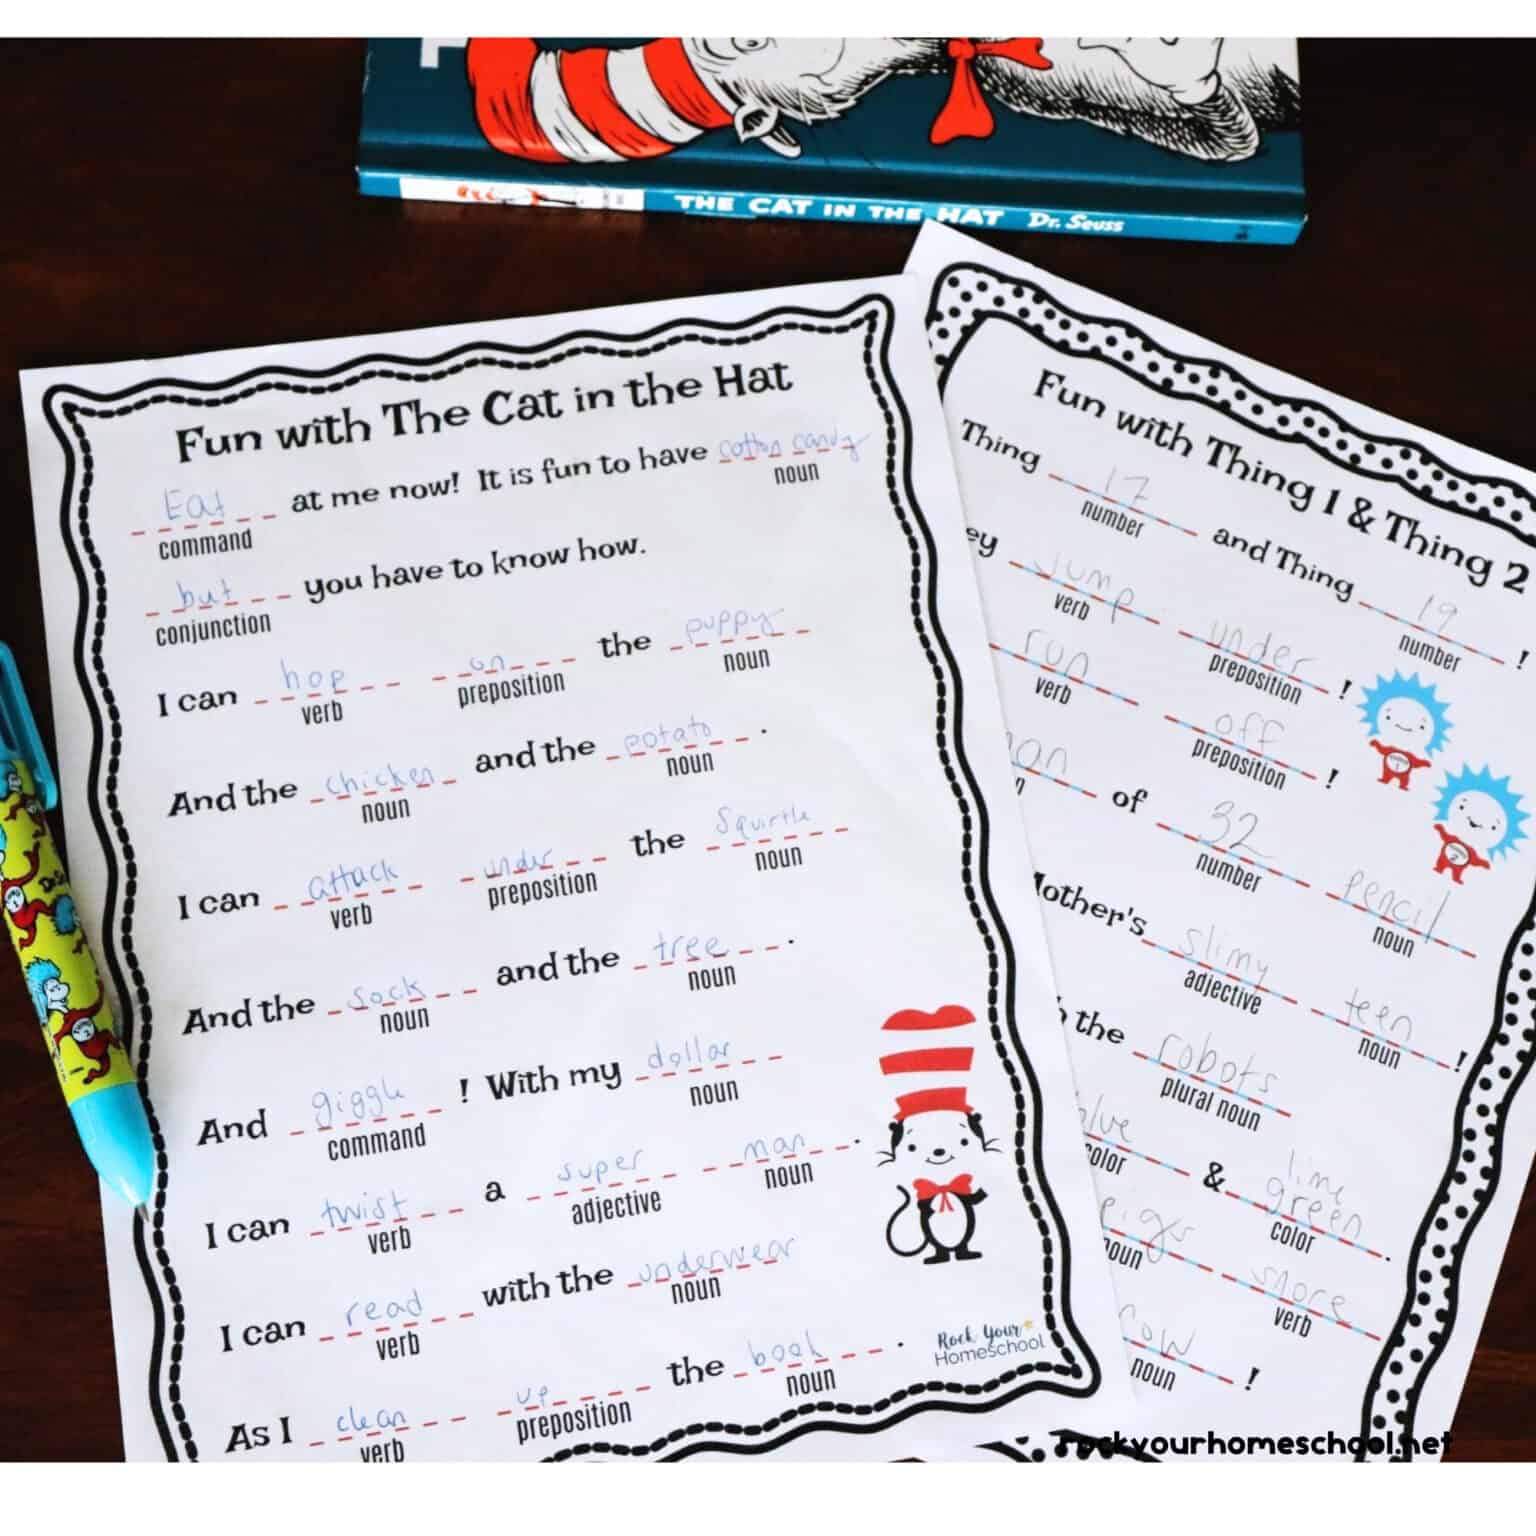 THE CAT IN THE HAT Dr. Seuss
Fun with The Cat in the Hat
Eat at me now! It is fun to have cotton candy
command noun
but you have to know how.
conjunction
I can hop on the puppy
verb preposition noun
And the chicken and the potato.
noun noun
I can attack under the Squirtle
verb preposition noun
And the sock and the tree.
noun noun
And giggle! With my dollar
command noun
I can twist a super man.
verb adjective noun
I can read with the underwear
verb noun
As I clean up the book.
verb preposition noun
Rock Your
Homeschool
Fun with Thing 1 & Thing 2
Thing 17 and Thing 19!
number number
ey jump under!
verb preposition
run off!
verb preposition
an of 32 pencil
number noun
other's slimy teen!
adjective noun
the robots
plural noun
lime
& green.
color color
snore
noun verb
ow!
noun
rockyourhomeschool.net